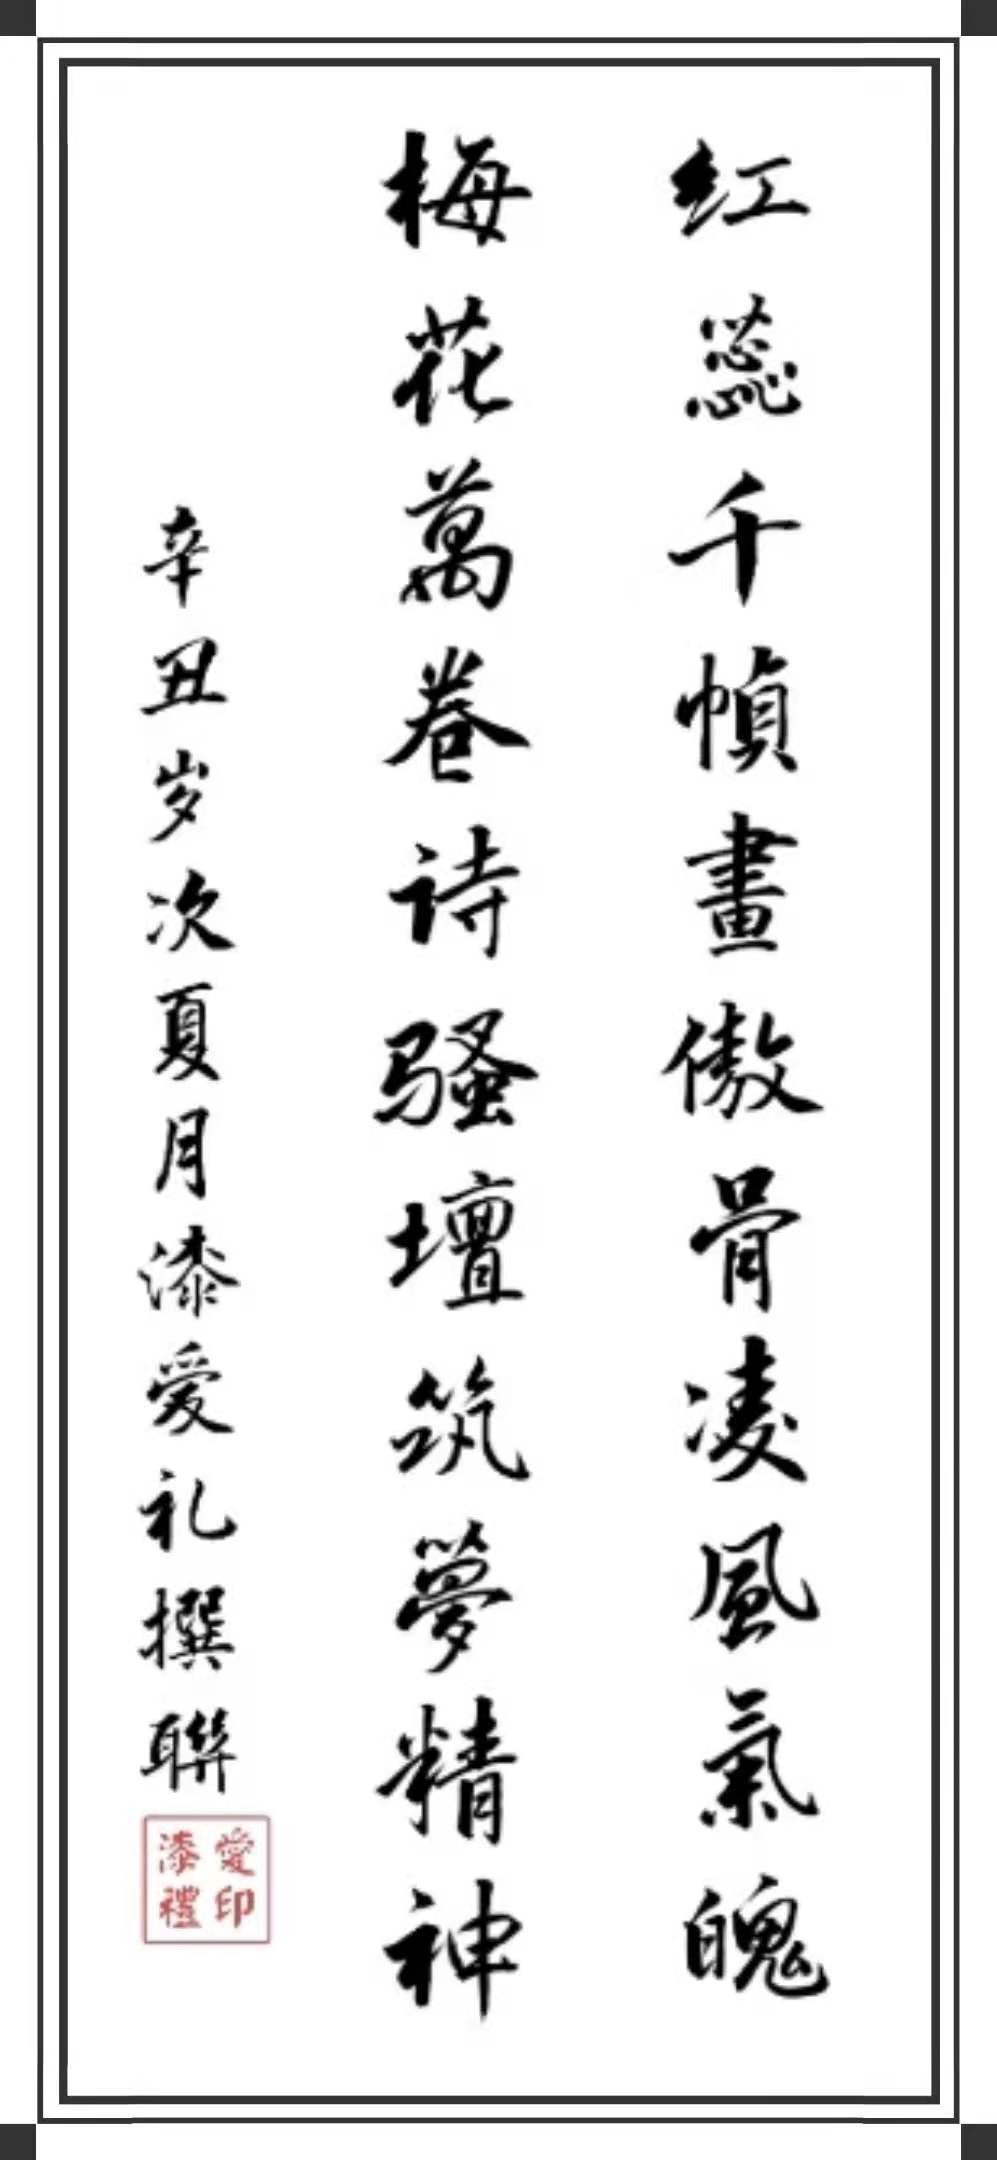 红蕊千幀畫傲骨凌風氣魄
梅花萬卷诗骚壇筑夢精神
辛丑岁次夏月漆爱礼撰聯
愛印
漆禮